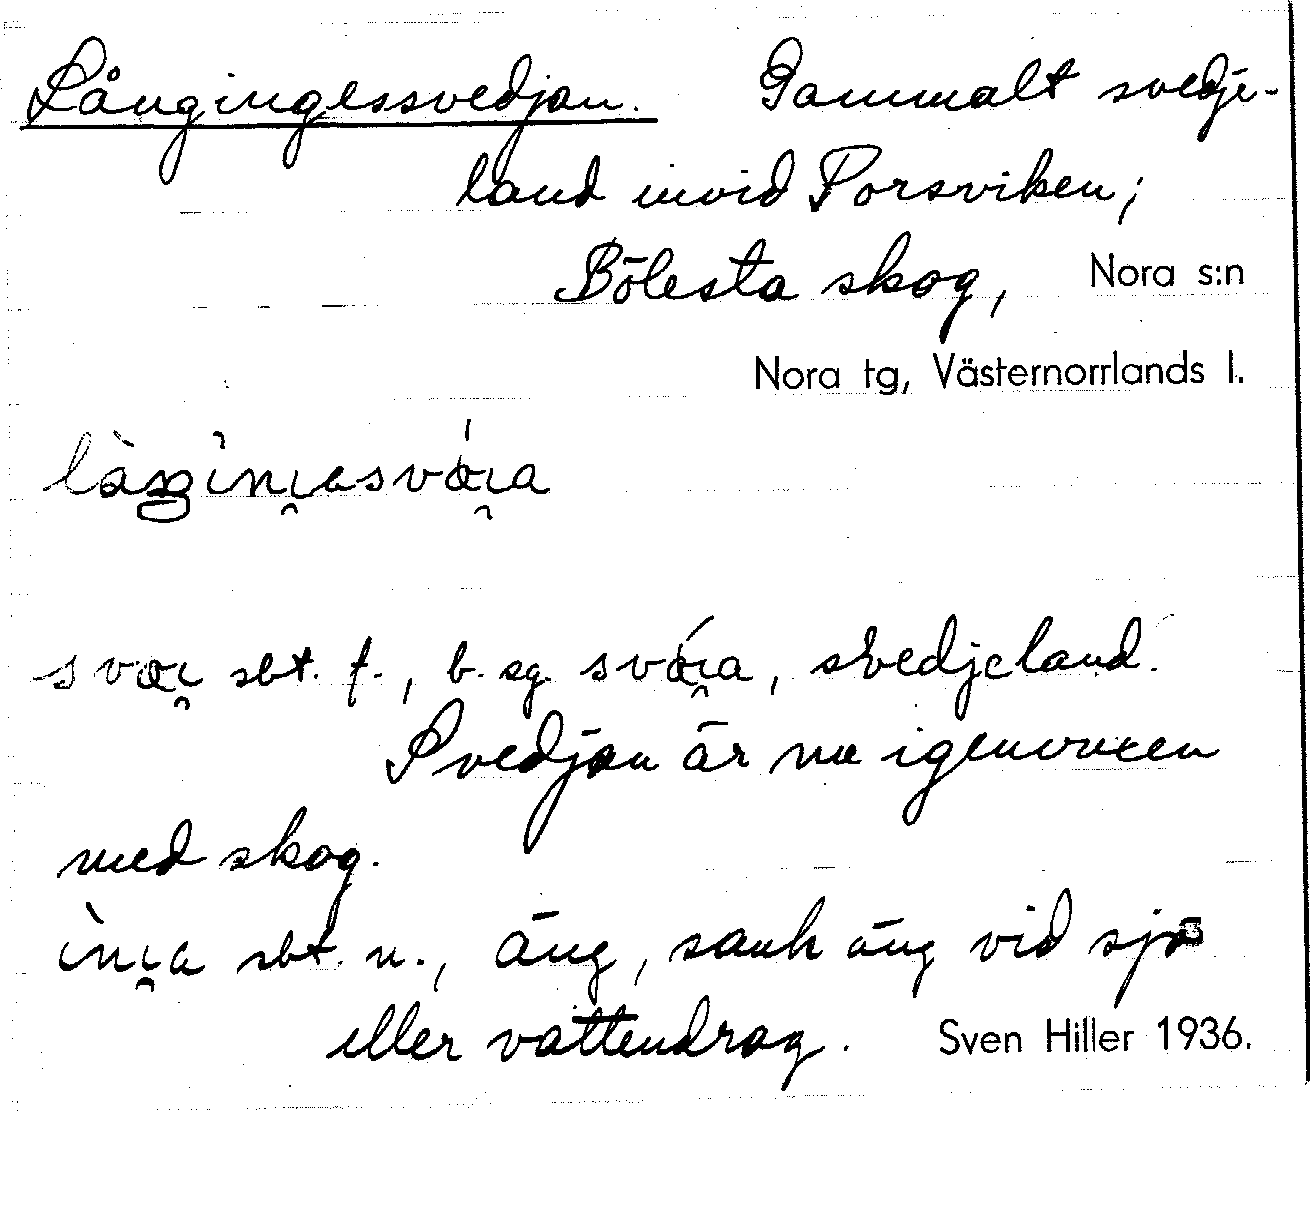 Långingessvedjan. Gammalt svedje-
land invid Porsviken;
Bölesta skog, Nora s:n
Nora tg, Västernorrlands l.
sbt. f., b. sg. , svedjeland.
Svedjan är nu igenvuxen
med skog.
sbt. n., äng, sank äng vid sjö
eller vattendrag. Sven Hiller 1936.